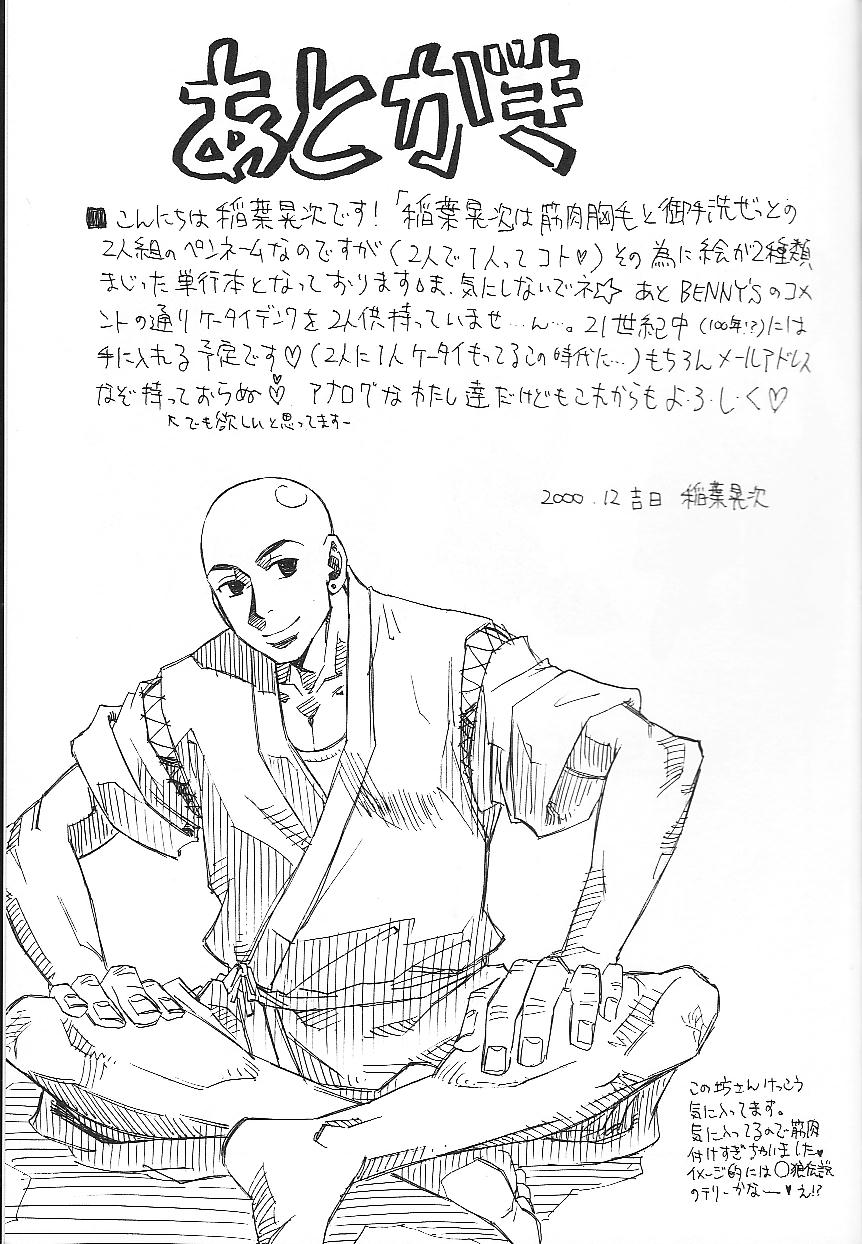 あとがき
■こんにちは稲葉晃次です!「稲葉晃次」は筋肉胸毛と御手洗ぜっとの
2人組のペンネームなのですが(2人で1人ってコト♡)その為に絵が2種類
まじった単行本となっております。ま、気にしないでネ☆ あとBENNY'Sのコメ
ントの通りケータイデンワを2人供持っていませ…ん…。21世紀中(100年!?)には
手に入れる予定です♡(2人に1人ケータイもってるこの時代に…)もちろんメールアドレス
なぞ持っておらぬ♡ アナログなわたし達だけどもこれからもよ・ろ・し・く♡
↖でも欲しいと思ってます-
2000.12吉日 稲葉晃次
この坊さんけっこう
気に入ってます。
気に入ってるので筋肉
付けすぎちゃいました♥
イメージ的には○狼伝説
のテリーかなー♥え!?